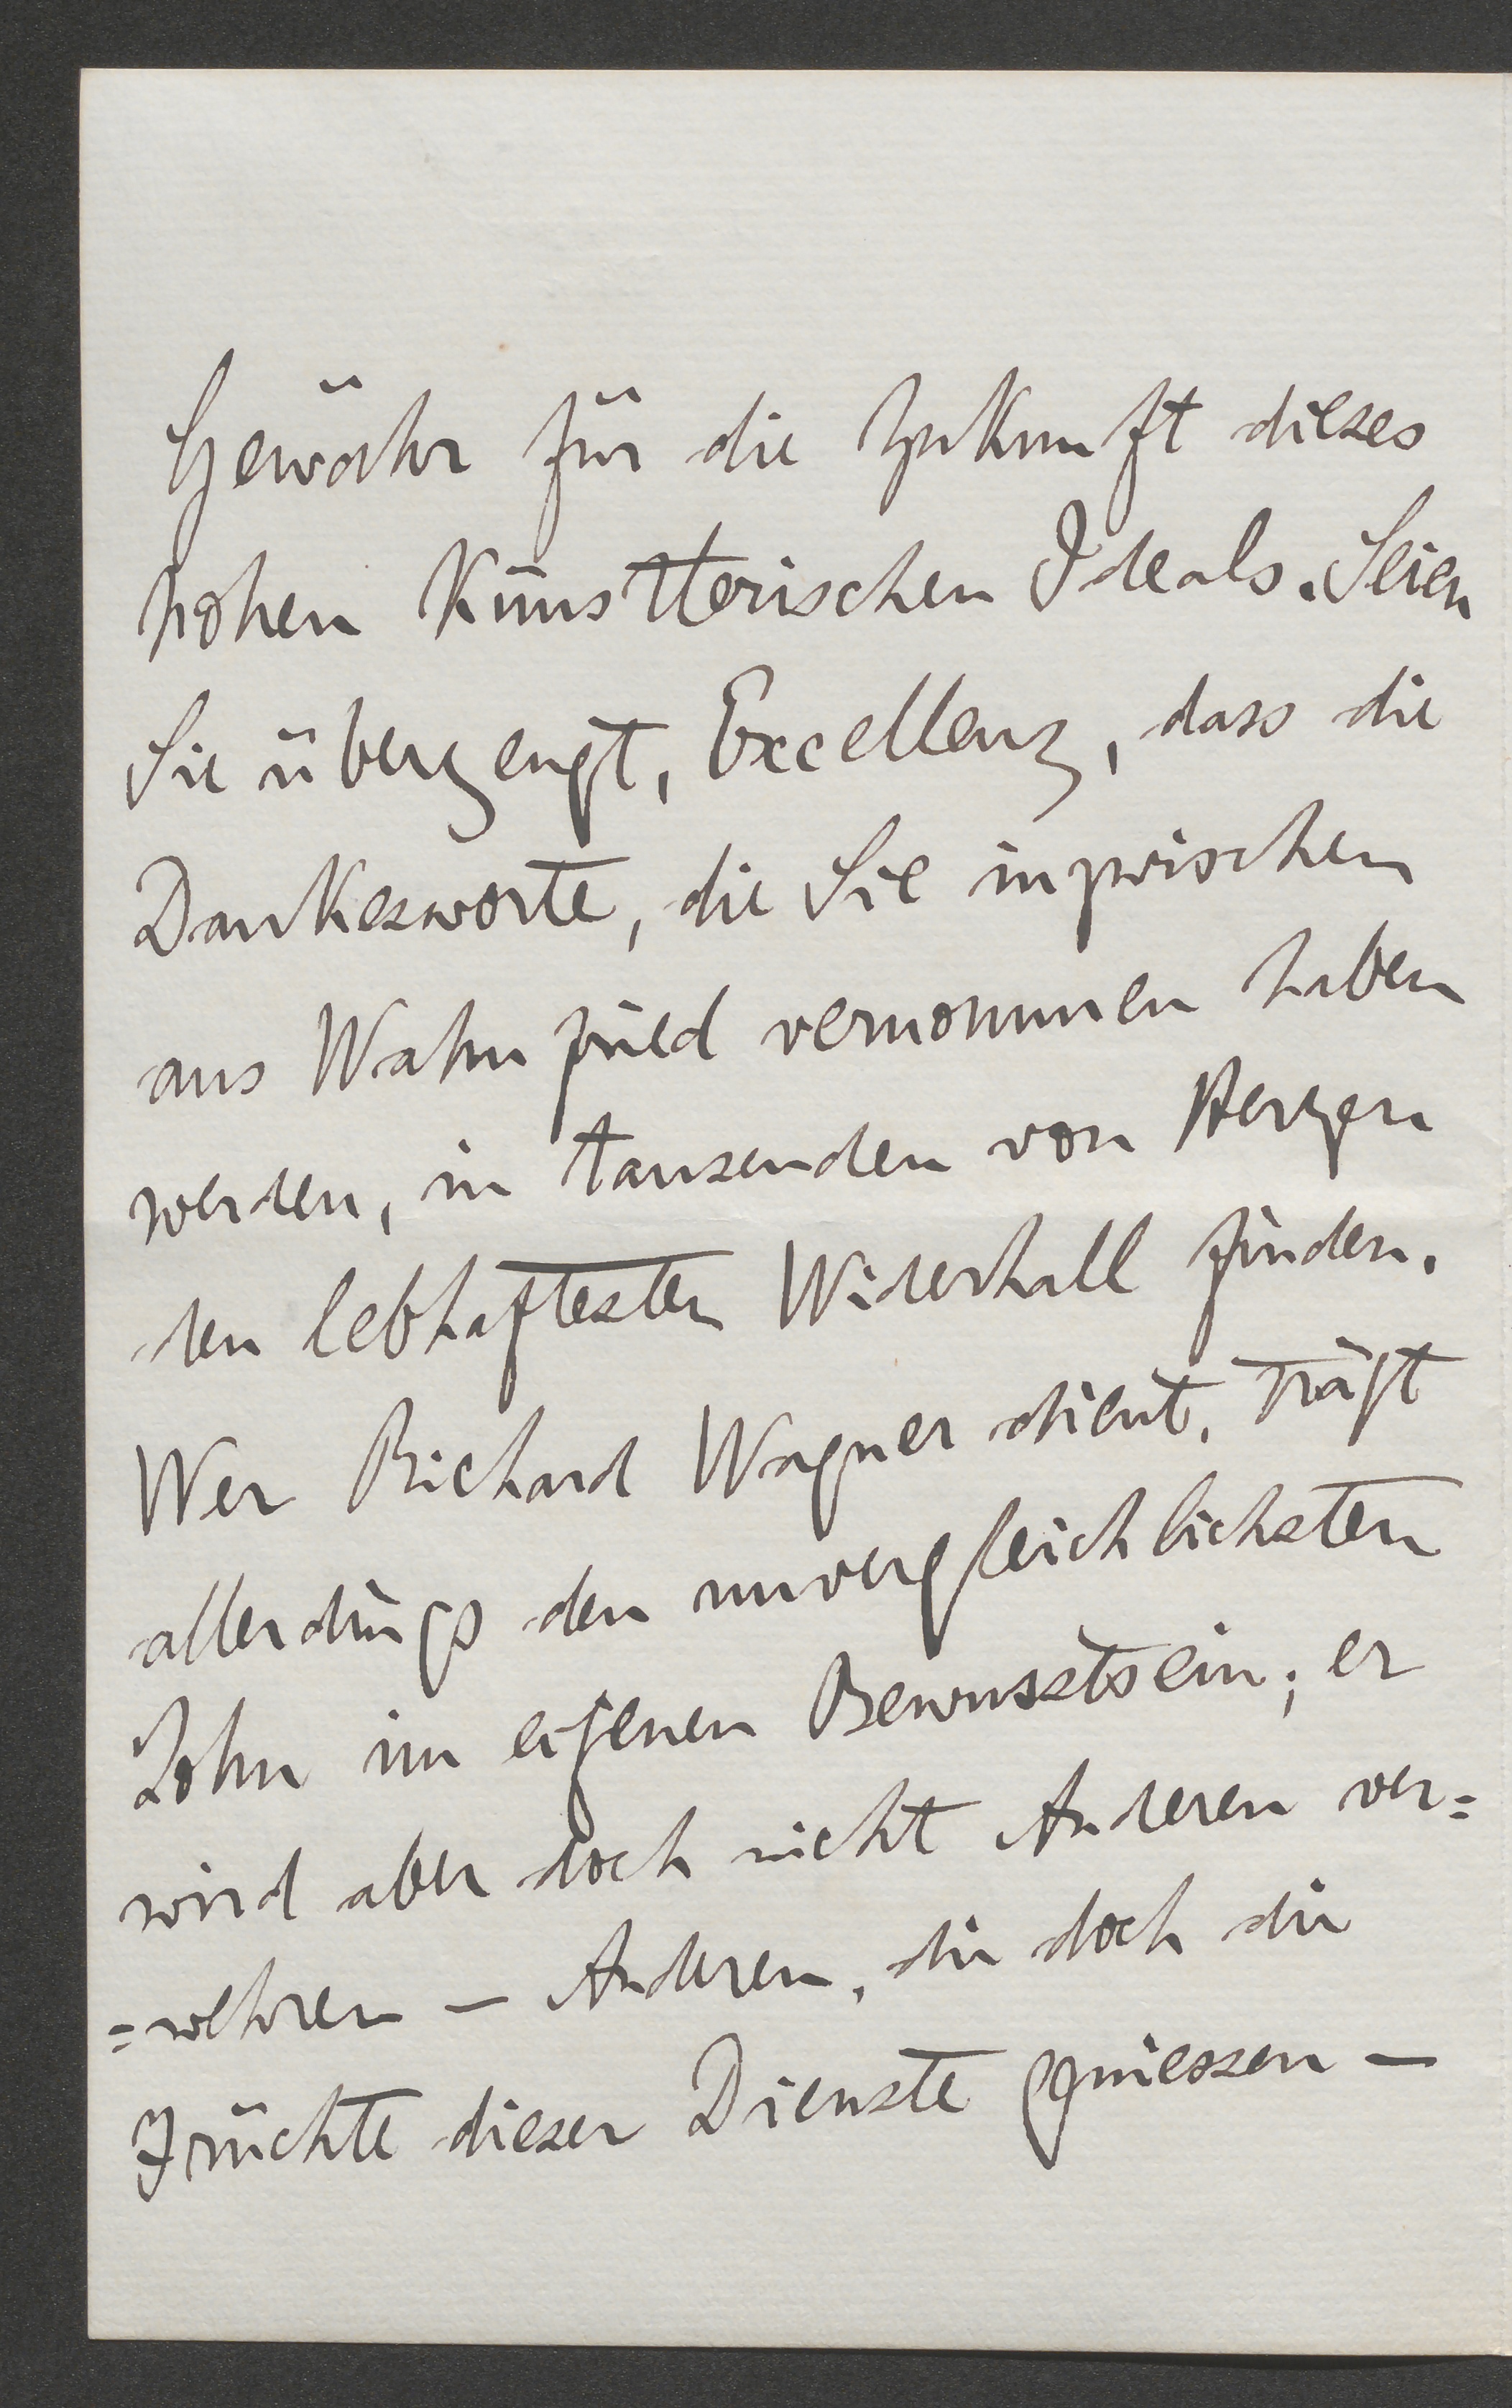 Gewähr für die Zukunft dieses
hohen künstlerischen Ideals. Seien
Sie überzeugt, Excellenz, dass die
Dankesworte, die Sie inzwischen
aus Wahnfried vernommen haben
werden, in tausenden von Herzen
den lebhaftesten Widerhall finden.
Wer Richard Wagner dient, trägt
allerdings den unvergleichlichsten
Lohn im eigenen Bewusstsein; er
wird aber doch nicht Anderen ver=
=wehren — Anderen, die doch die
Früchte dieser Dienste geniessen —